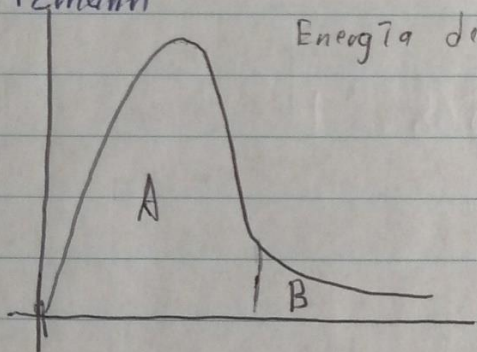 Energía de
A
B